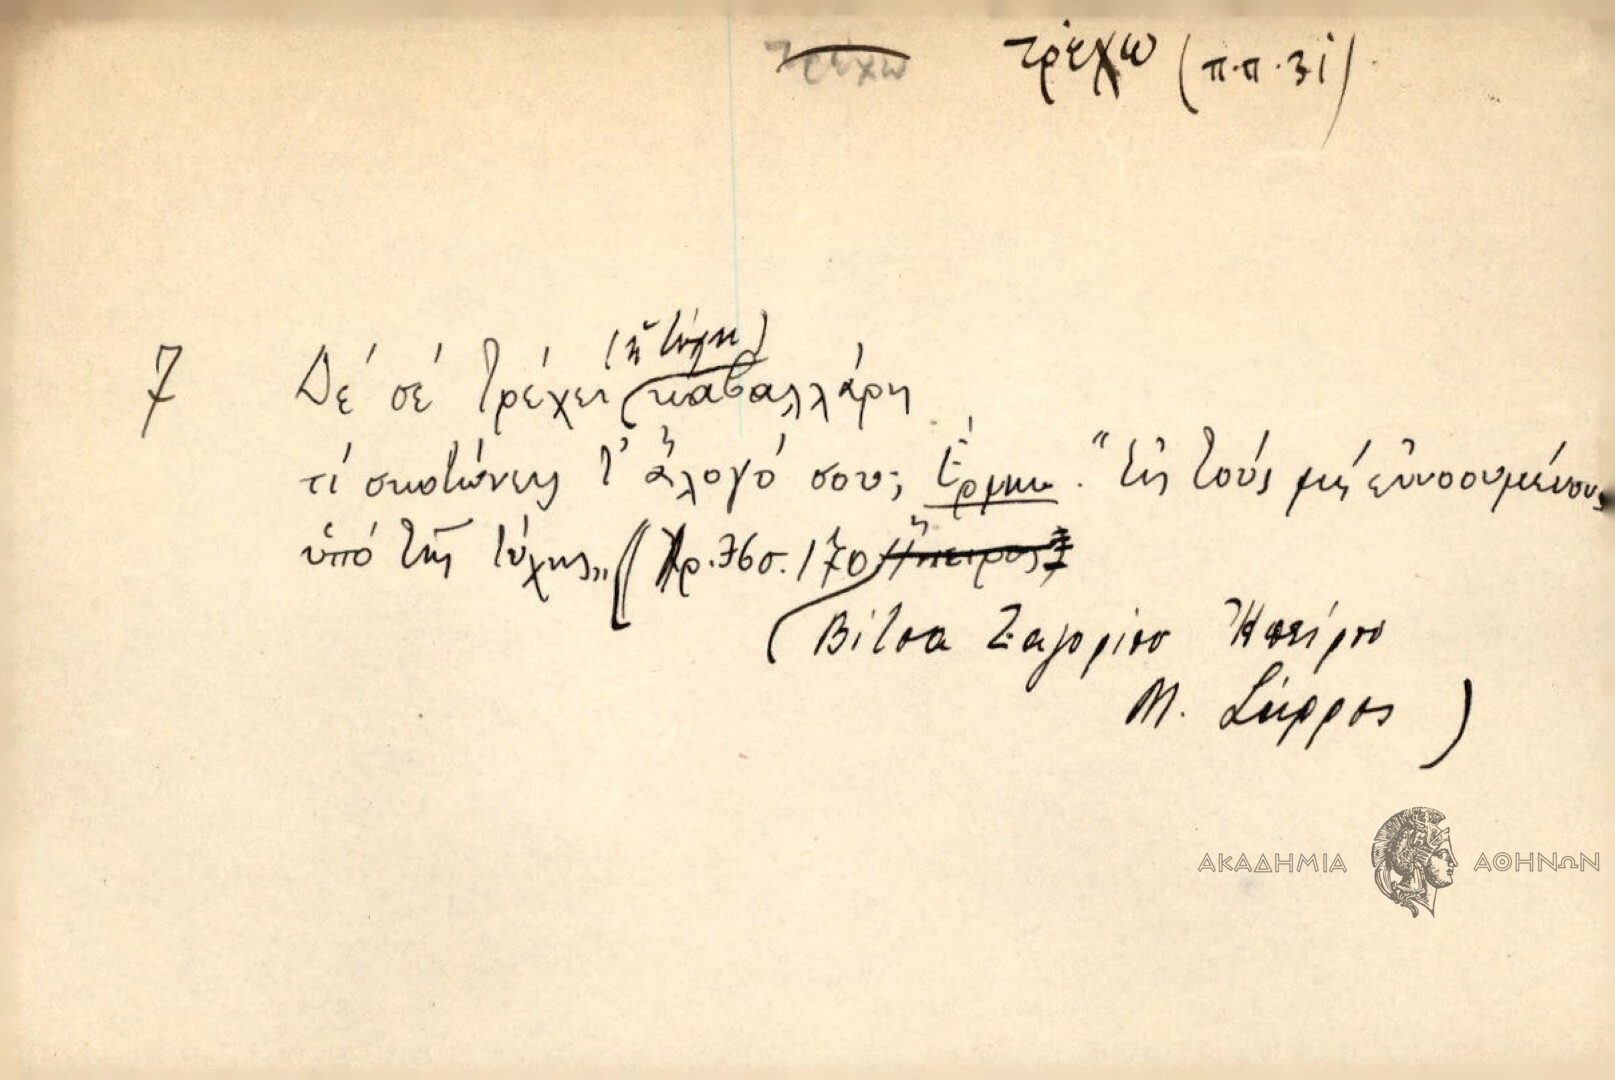 τρέχω τρέχω (π.π. 31)
(ἡ τύχη)
7 Δέ σέ τρέχει καβαλλάρη
τί σκοτώνεις τ' ἄλογό σου; Ἑρμην. "εἰς τούς μή εὐνοουμένους
ὑπό τῆς τύχης" (Ἀρ. 76 σ. 170 Ἤπειρος
Βίτσα Ζαγορίου Ἠπείρου
Μ. Σύρρος)
ΑΚΑΔΗΜΙΑ ΑΘΗΝΩΝ